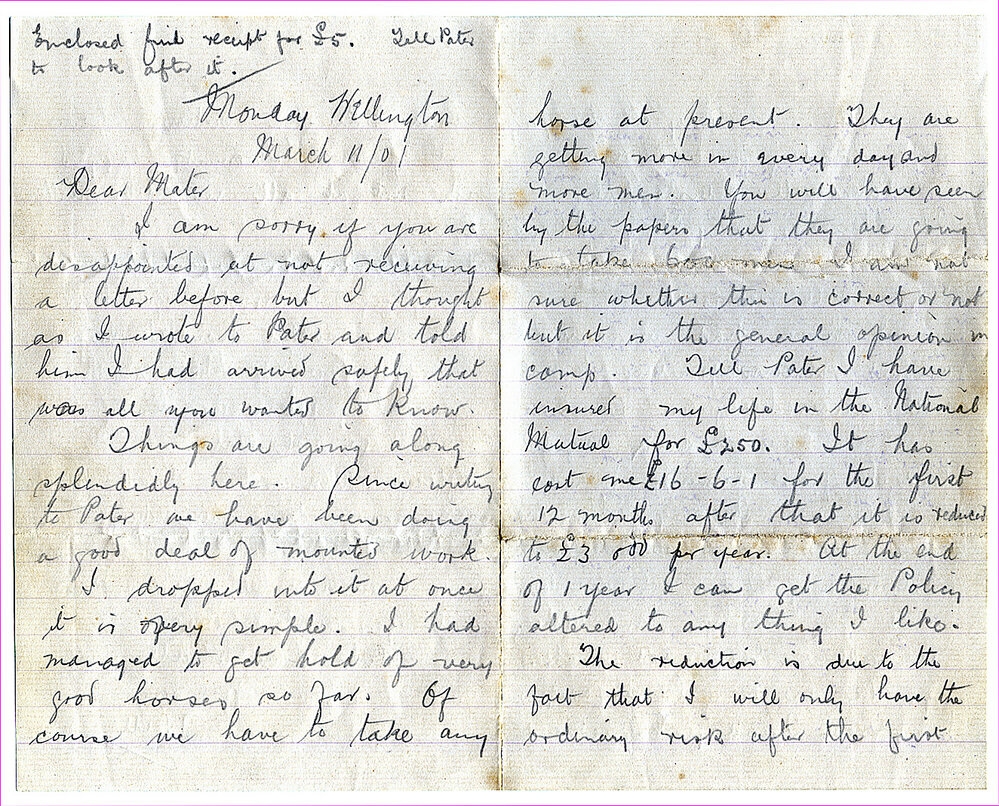 Enclosed find receipt for £5. Tell Pater
to look after it.
Monday Wellington
March 11/01
Dear Mater
I am sorry if you are
disappointed at not receiving
a letter before but I thought
as I wrote to Pater and told
him I had arrived safely that
was all you wanted to know.
Things are going along
splendidly here. Since writing
to Pater we have been doing
a good deal of mounted work.
I dropped into it at once
it is very simple. I had
managed to get hold of very
good horses so far. Of
course we have to take any
horse at present. They are
getting more in every day and
more men. You will have seen
by the papers that they are going
to take 600 men I am not
sure whether this is correct or not
but it is the general opinion in
camp. Tell Pater I have
insured my life in the National
Mutual for £250. It has
cost me £16-6-1 for the first
12 months after that it is reduced
to £3 per year. At the end
of 1 year I can get the Policy
altered to any thing I like.
The reduction is due to the
fact that I will only have the
ordinary risk after the first